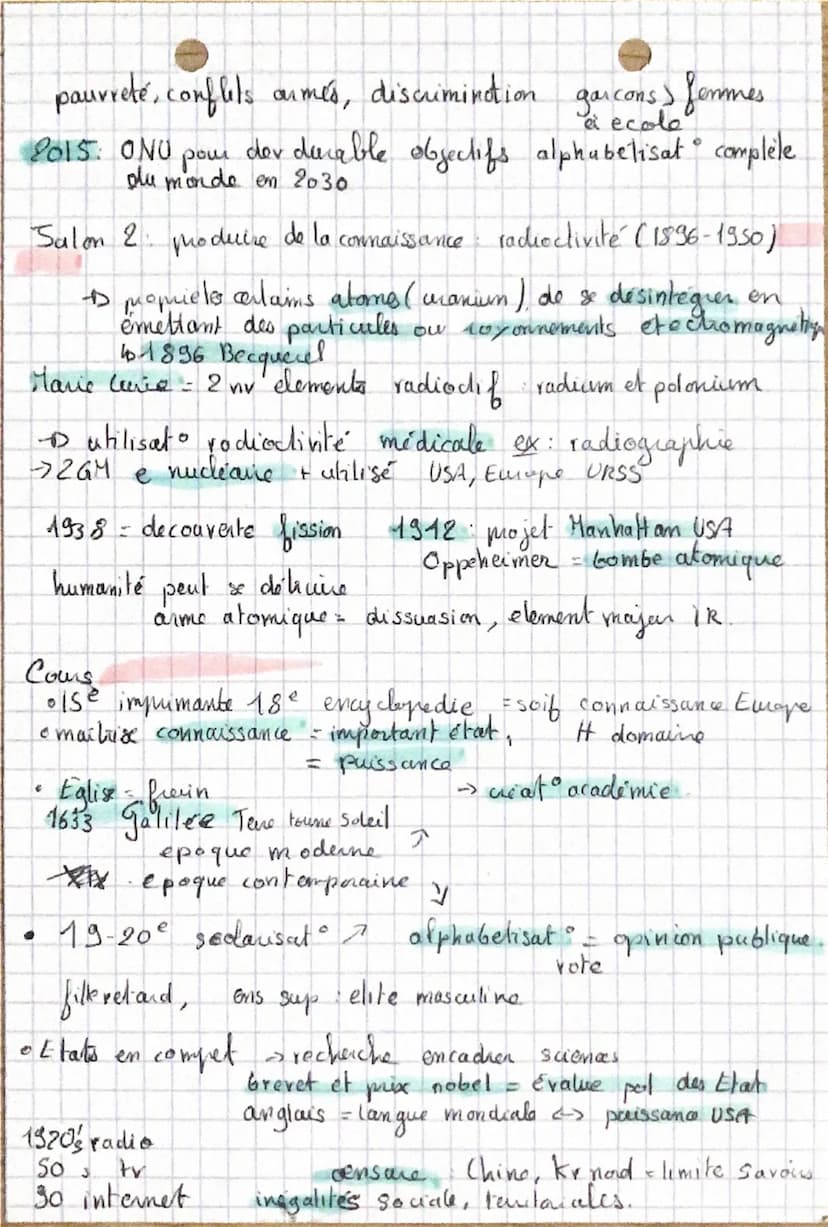 pauvreté, conflits armés, discrimination garcons > femmes
à ecole
2015: ONU pour dev durable objectifs alphabetisat° complèle
du monde en 2030
Salon 2 : produire de la connaissance : radioctivité (1896-1950)
→ proprietes certains atomes (uranium), de se désintégrer en
émettant des particules ou rayonnements electromagnétiq
↳ 1896 Becquerel
Marie Curie = 2 nv elements radioctif : radium et polonium
→ utilisat° radioctivité médicale ex : radiographie
→ 2GM e nucléaire + utilisé USA, Europe URSS
1938 = decouverte fission 1942 : projet Manhattan USA
Oppeheimer = bombe atomique
humanité peut se détruire
arme atomique = dissuasion, element majeur IR.
Cours
15e imprimante 18e encyclopedie = soif connaissance Europe
maitrise connaissance = important état, # domaine
= puissance
Eglise = frein → creat° académie
1633 Galilée Terre tourne soleil
epoque moderne ↗
epoque contemporaine ↘
19-20e scolarisat° ↗ alphabetisat° = opinion publique.
vote
fille retard, ens sup : elite masculine
Etats en compet → recherche encadrer sciences
brevet et prix nobel = évalue pol des Etat
anglais = langue mondiale <-> puissance USA
1920's radio
50 s tv censure : Chine, Kr nord = limite savoirs
90 internet inégalités sociale, territoriales.